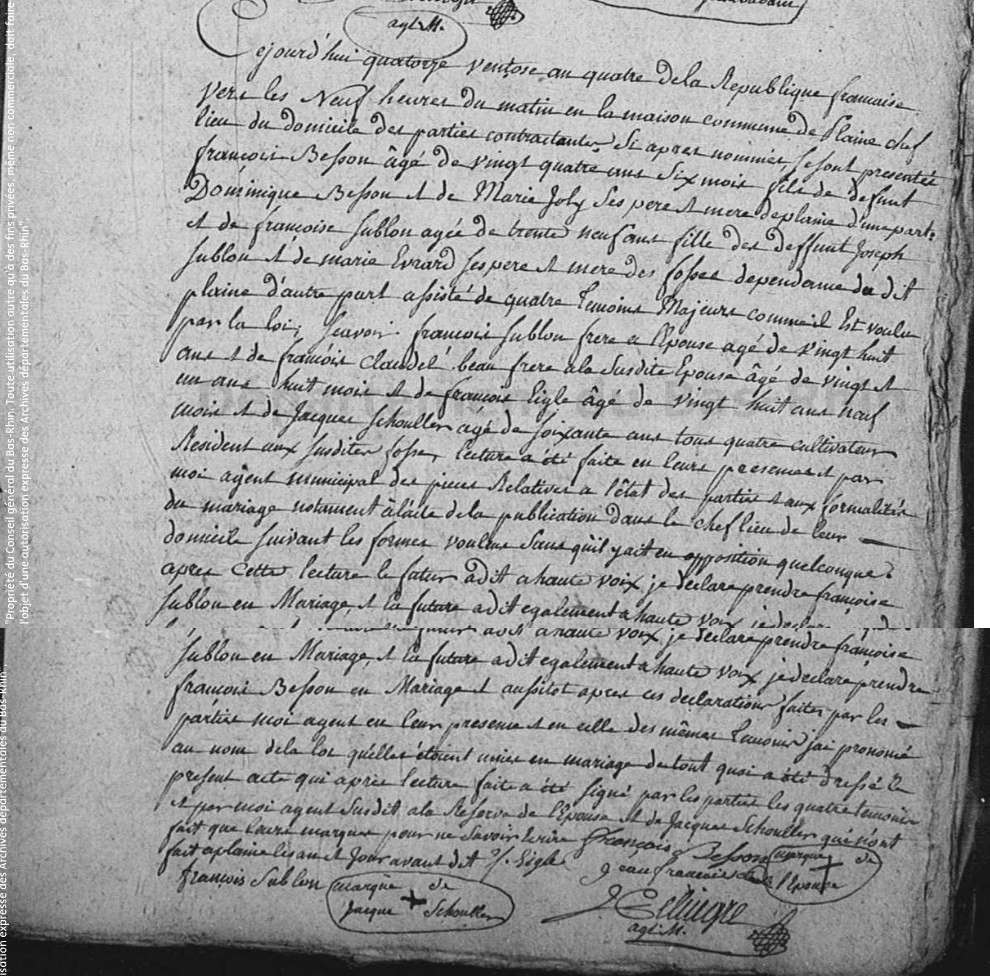 agt. M.
Cejourd'hui quatorze ventose an quatre dela Republique francaise
vers les Neuf heures du matin en la maison commune de Plaine chef
lieu du domicile des parties contractantes Si apres nommés, se sont presentés
francois Besson âgé de vingt quatre ans Six mois fils de defunt
Dominique Besson et de Marie Joly Ses pere et mere deplaine d'une part
et de francoise Sublon agée de trente neuf ans fille des deffunt Joseph
Sublon et de marie Evrard ses pere et mere des fosses dependance du dit
plaine d'autre part assisté de quatre Temoins Majeurs comme il Est voulu
par la loi; Scavoir francois Sublon frere a l'Epouse agé de vingt huit
ans et de francois Claudel beau frere ala Susdite Epouse âgé de vingt et
un ans huit mois et de francois Eigle âgé de vingt huit ans neuf
mois et de Jacques Schouller agé de soixante ans tous quatre cultivateurs
Resident aux Susdites fosses, lecture a été faite en leurs presence et par
moi agent municipal des pieces Relatives a l'êtat des parties et aux formalités
du mariage notament à la dela publication dans le chef lieu de leur
domicile Suivant les formes voulues Sans qu'il y ait eu opposition quelconque.
apres Cette lecture le futur a dit a haute voix je declare prendre françoise
Sublon en Mariage, et la future a dit egalement a haute voix
a haute voix, je declare prendre françoise
Sublon en Mariage, et la future a dit egalement a haute voix je declare prendre
francois Besson en Mariage et aussitot apres ces declarations faites par les
parties moi agent en leur presence et en celle des mêmes Temoins j'ai prononcé
au nom dela loi qu'elles étoient unies en mariage de tout quoi a été dressé le
present acte qui apres lecture faite a été signé par les parties les quatre temoins
et par moi agent Susdit ala Reserve de l'Epouse et de Jacques Schouller qui n'ont
fait que leurs marques pour ne Savoir Ecrire François Besson marque de
fait a plaine les an et Jour avant dit f. Eigle jean francois l'Epouse
François Sublon marque de
Jacque Schouller
agt. M.
"Propriété du Conseil général du Bas-Rhin. Toute utilisation autre qu'à des fins privées, même non commerciale, doit faire
l'objet d'une autorisation expresse des Archives départementales du Bas-Rhin".